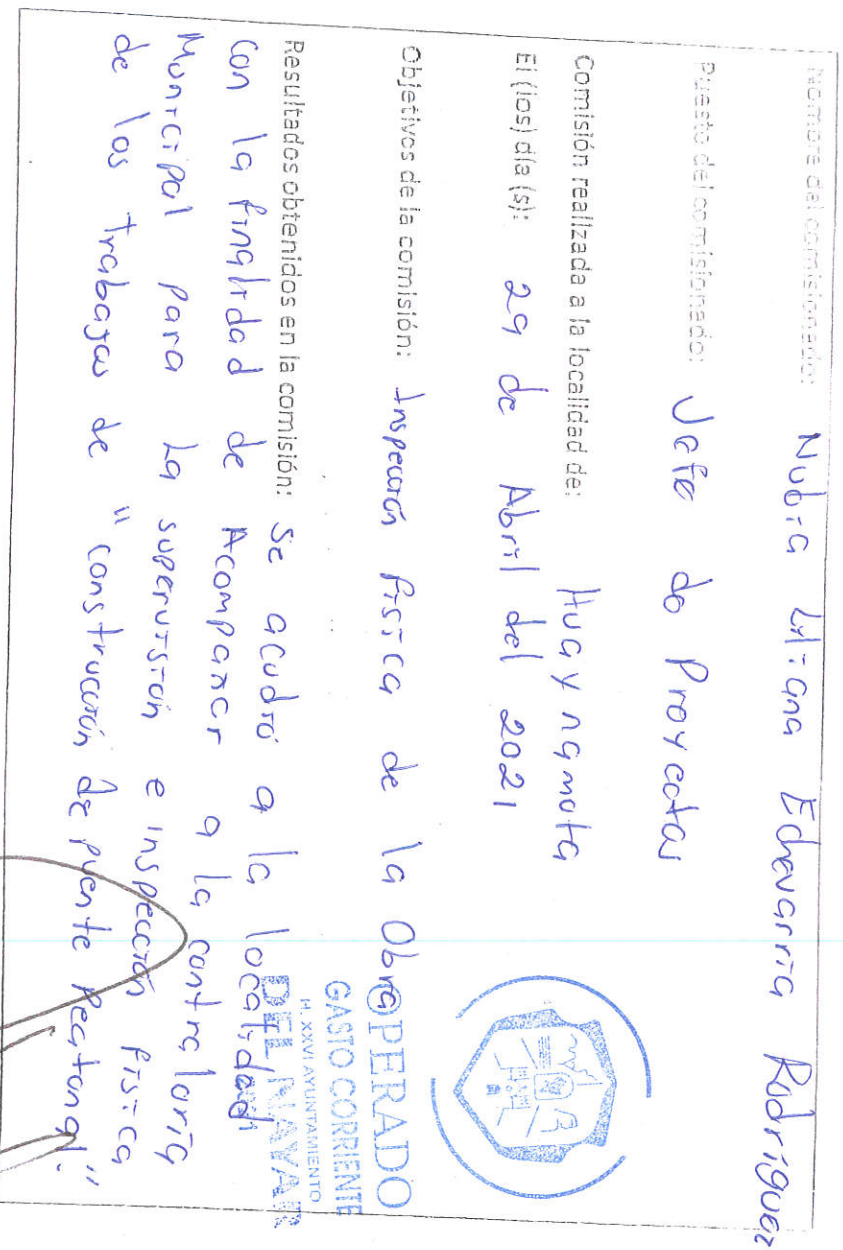 Nombre del comisionado: Nubia Liliana Echevarria Rodriguez
Puesto del comisionado: Jefe de Proyectos
Comisión realizada a la localidad de: Huaynamota
El (los) día (s): 29 de Abril del 2021
Objetivos de la comisión: Inspección física de la Obra
Resultados obtenidos en la comisión: Se acudió a la localidad
con la finalidad de Acompañar a la contraloria
Municipal para la supervisión e inspección física
de los trabajos de "construcción de puente Peatonal".
OPERADO
GASTO CORRIENTE
H. XXVI AYUNTAMIENTO
DEL NAYAR